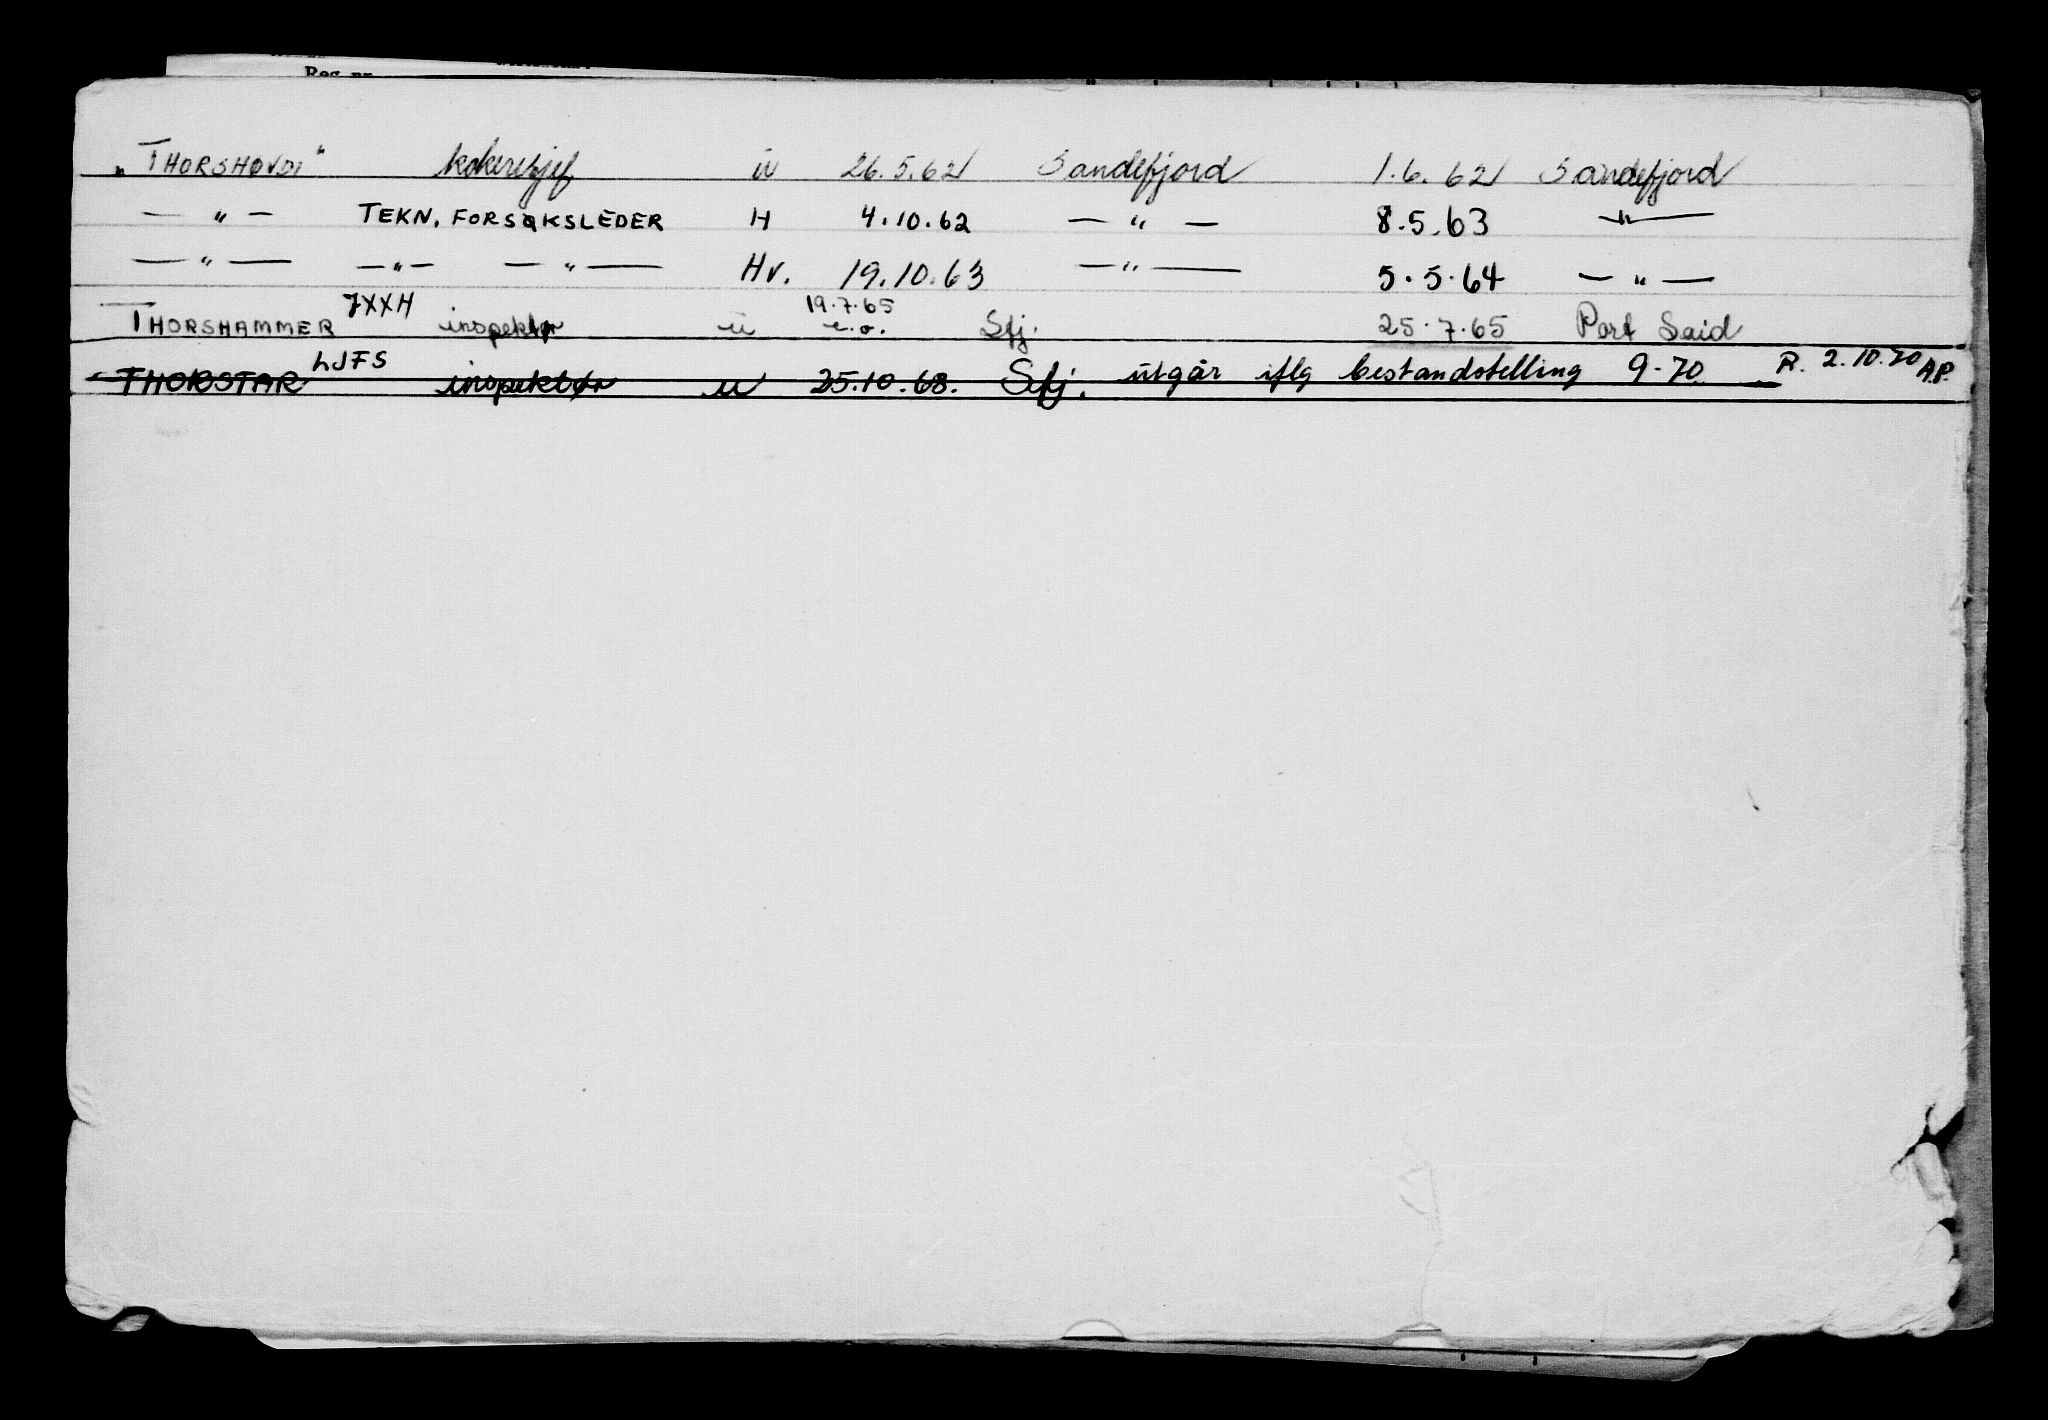 Reg. nr.
„THORSHØVDI" kokerisjef u 26.5.62 Sandefjord 1.6.62 Sandefjord
— " — TEKN. FORSØKSLEDER H 4.10.62 — " — 8.5.63 — " —
— " — — " — — " — Hv. 19.10.63 — " — 5.5.64 — " —
JXXH 19.7.65
THORSHAMMER inspektør u e.o. Sfj. 25.7.65 Port Said
LJFS
THORSTAR inspektør u 25.10.68. Sfj. utgår iflg bestandstelling 9-70 R. 2.10.70 A.P.